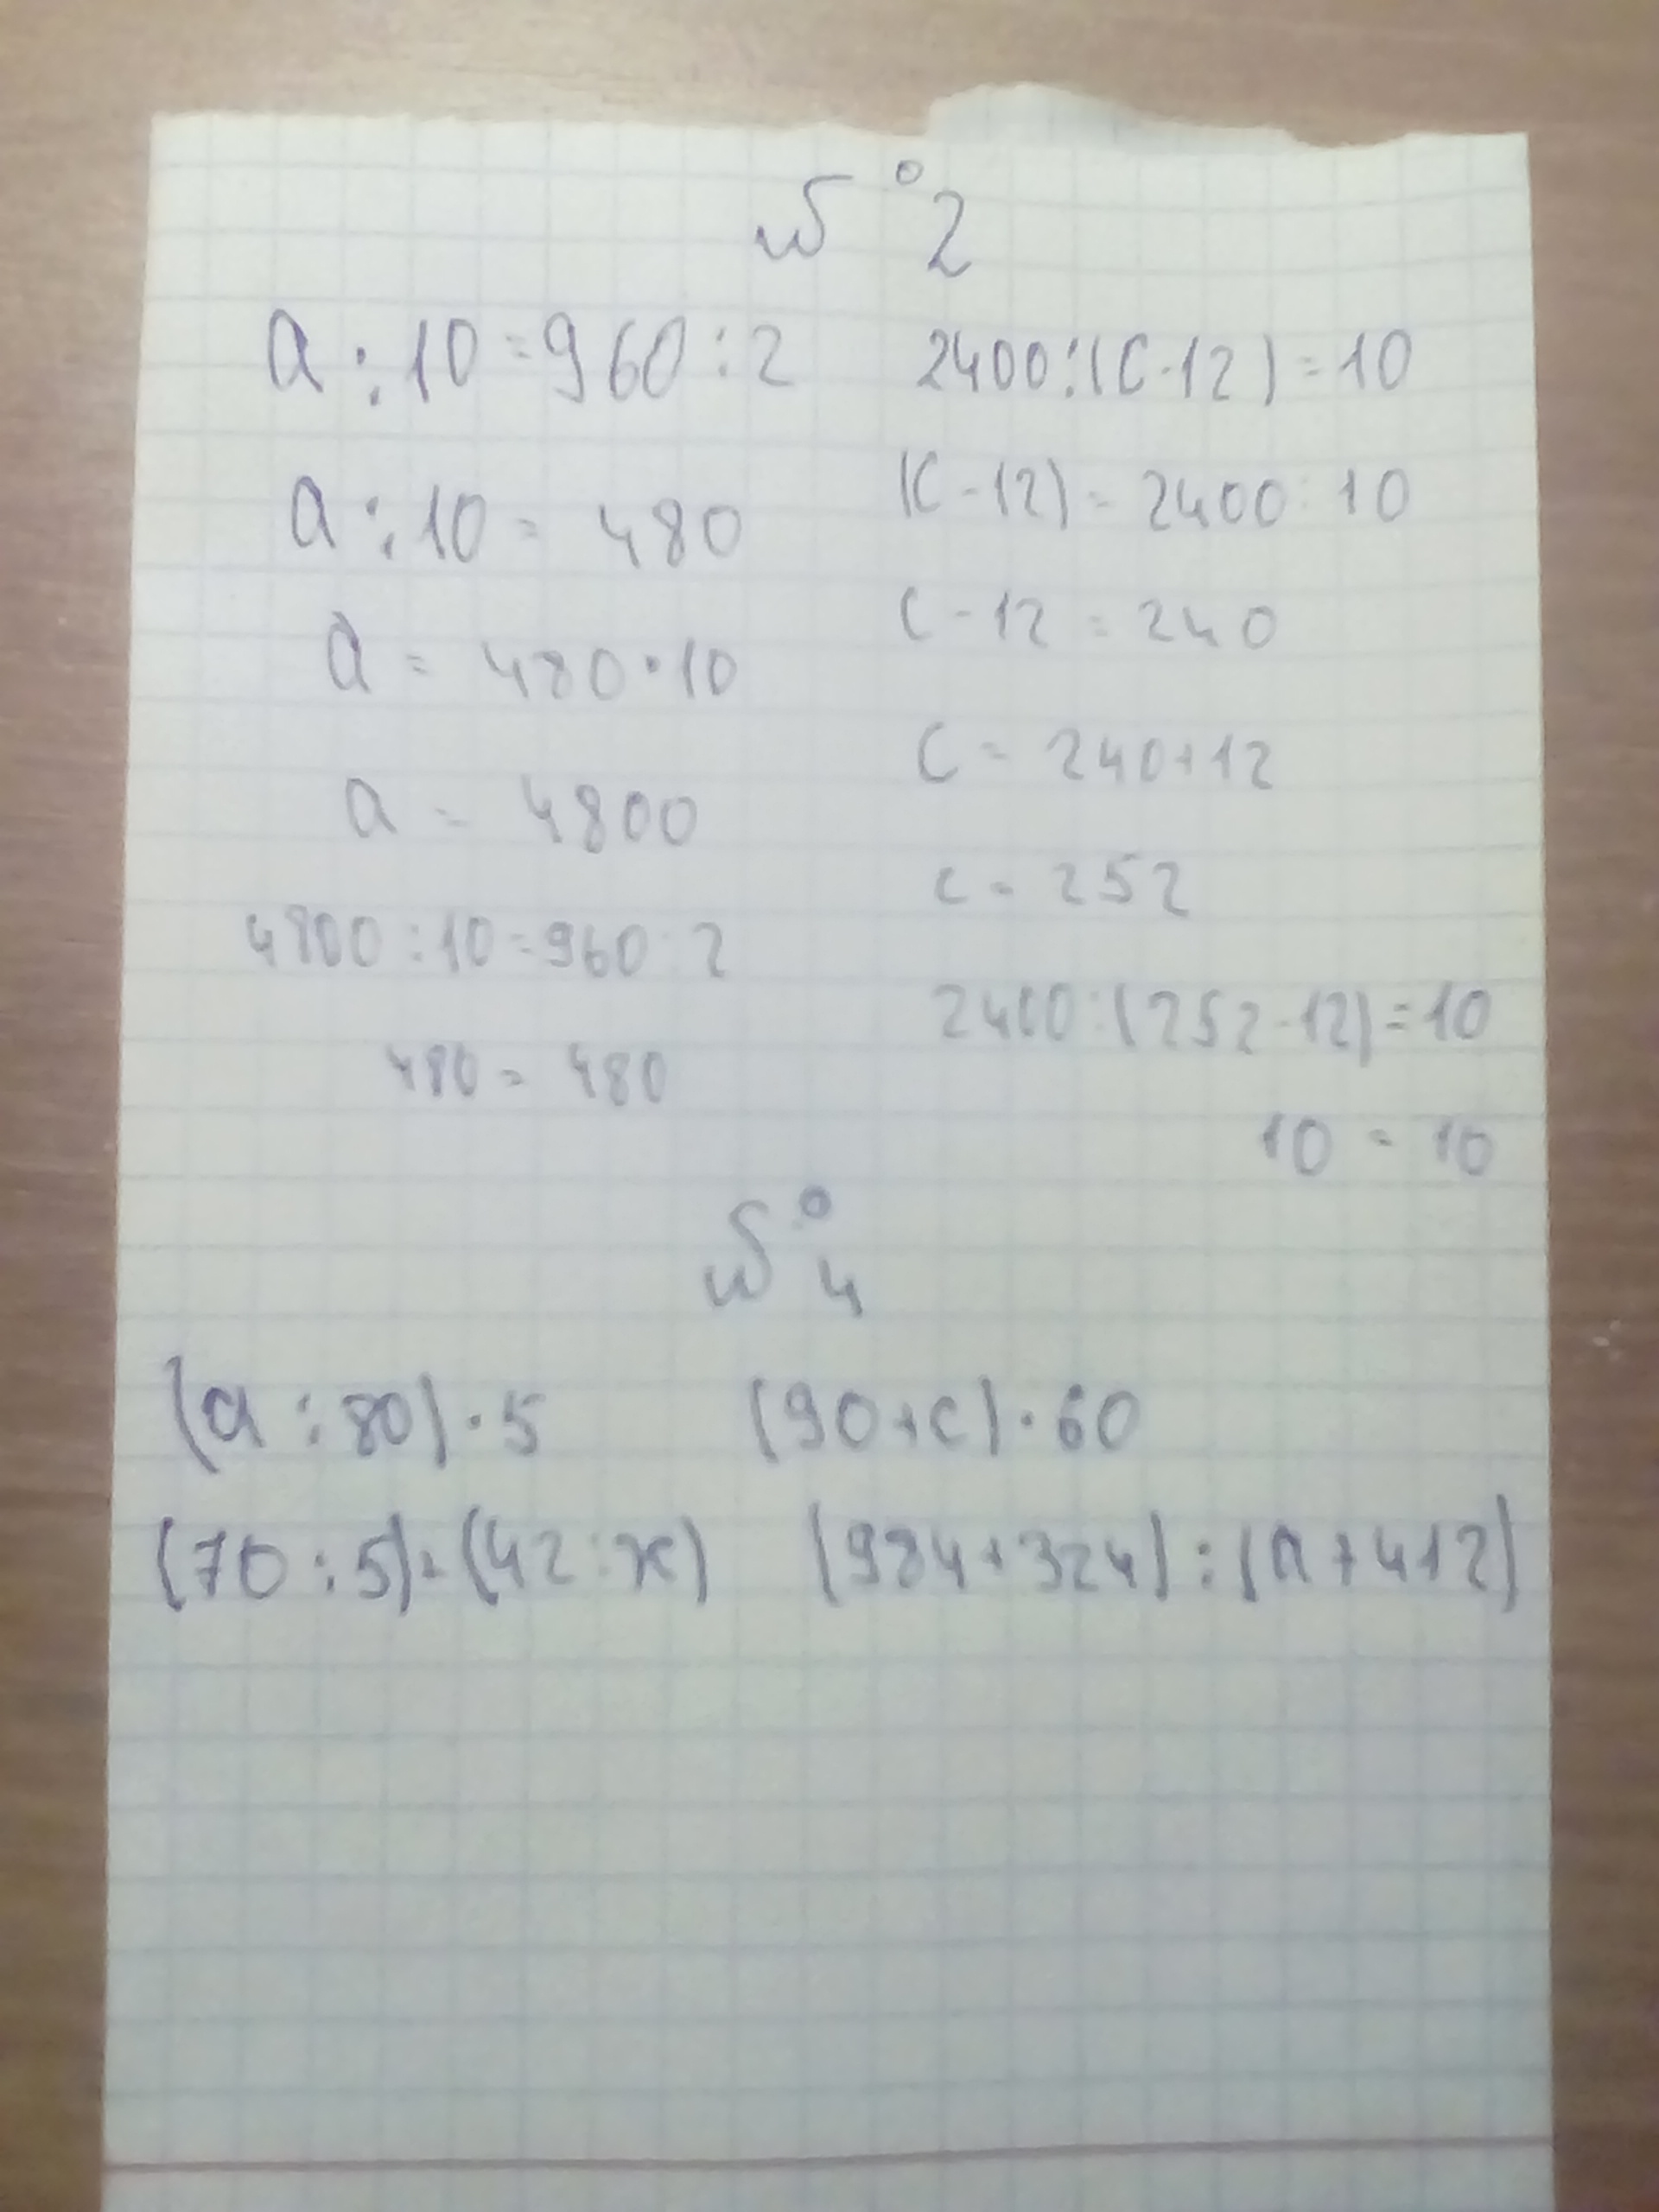 № 2
a : 10 = 960 : 2
a : 10 = 480
a = 480 · 10
a = 4800
4800 : 10 = 960 : 2
480 = 480
2400 : (c - 12) = 10
(c - 12) = 2400 : 10
c - 12 = 240
c = 240 + 12
c = 252
2400 : (252 - 12) = 10
10 = 10
№ 4
(a : 80) · 5
(90 + c) · 60
(70 : 5) · (42 : x)
(984 + 324) : (a + 412)